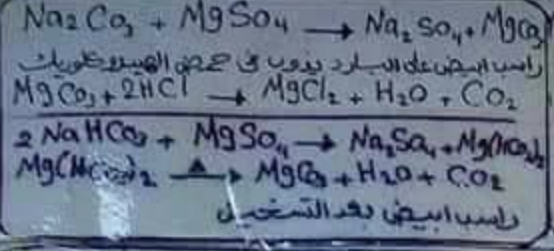 Na2CO3 + MgSO4 → Na2SO4 + MgCO3
راسب ابيض على البارد يذوب فى حمض الهيدروكلوريك
MgCO3 + 2HCl → MgCl2 + H2O + CO2
2NaHCO3 + MgSO4 → Na2SO4 + Mg(HCO3)2
Mg(HCO3)2 —Δ→ MgCO3 + H2O + CO2
راسب ابيض بعد التسخين